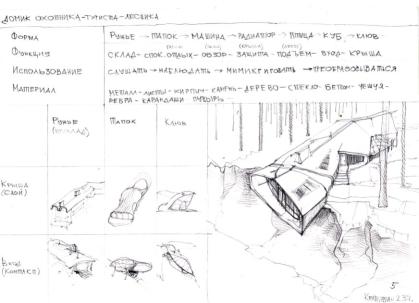 ДОМИК ОХОТНИКА-ТУРИСТА-ЛЕСНИКА
ФОРМА РУЖЬЕ → ТАПОК → МАШИНА → РАДИАТОР → ПТИЦА → КУБ → КЛЮВ
ФУНКЦИЯ СКЛАД- СПОК. ОТДЫХ- ОБЗОР- ЗАЩИТА- ПОДЪЕМ- ВХОД- КРЫША
ИСПОЛЬЗОВАНИЕ СЛУШАТЬ → НАБЛЮДАТЬ → МИМИКРИРОВАТЬ → ПРЕОБРАЗОВЫВАТЬСЯ
МАТЕРИАЛ МЕТАЛЛ- ЛИСТЫ- КИРПИЧ- КАМЕНЬ- ДЕРЕВО- СТЕКЛО- БЕТОН- ЧЕШУЯ-
РЕБРА- КАРАНДАШИ
РУЖЬЕ ТАПОК КЛЮВ
КРЫША
(СЛОИ)
ВХОД
(КОНТАКТ)
5